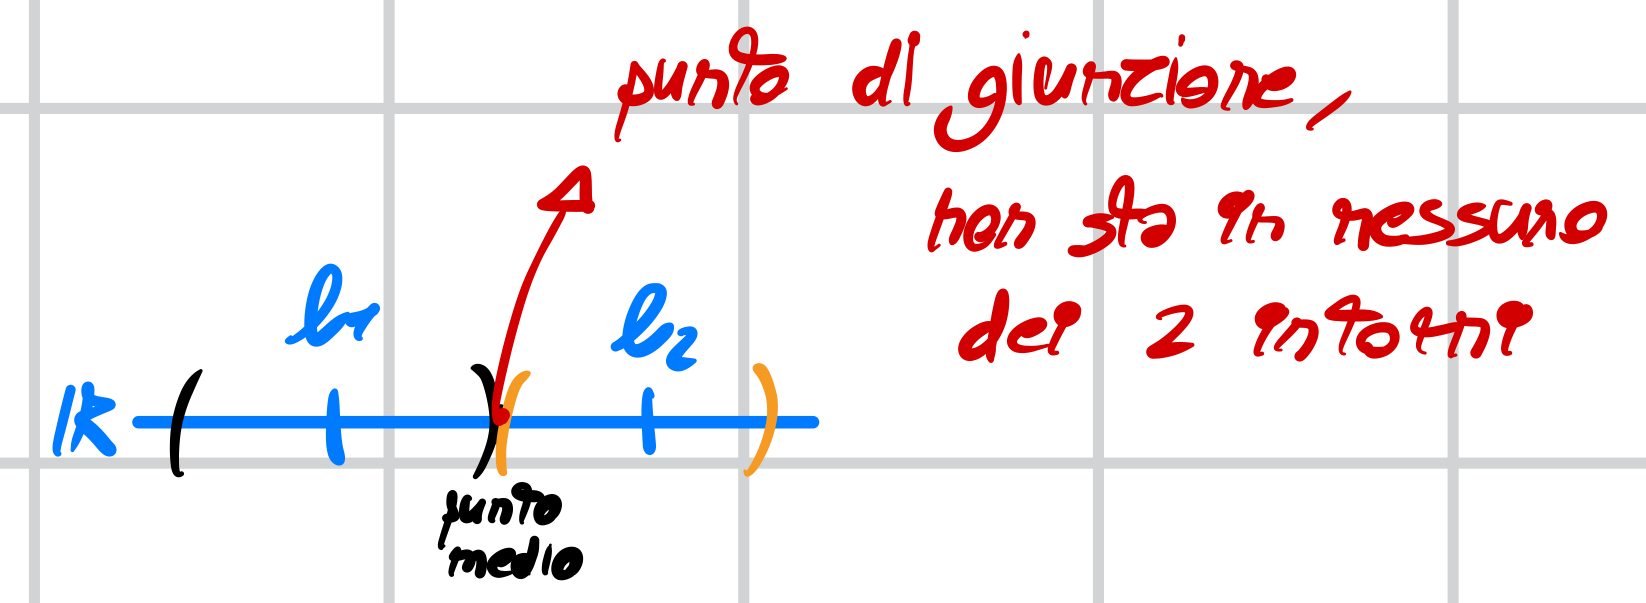 punto di giunzione,
non sta in nessuno
dei 2 intorni
l₁ l₂
ℝ
punto
medio